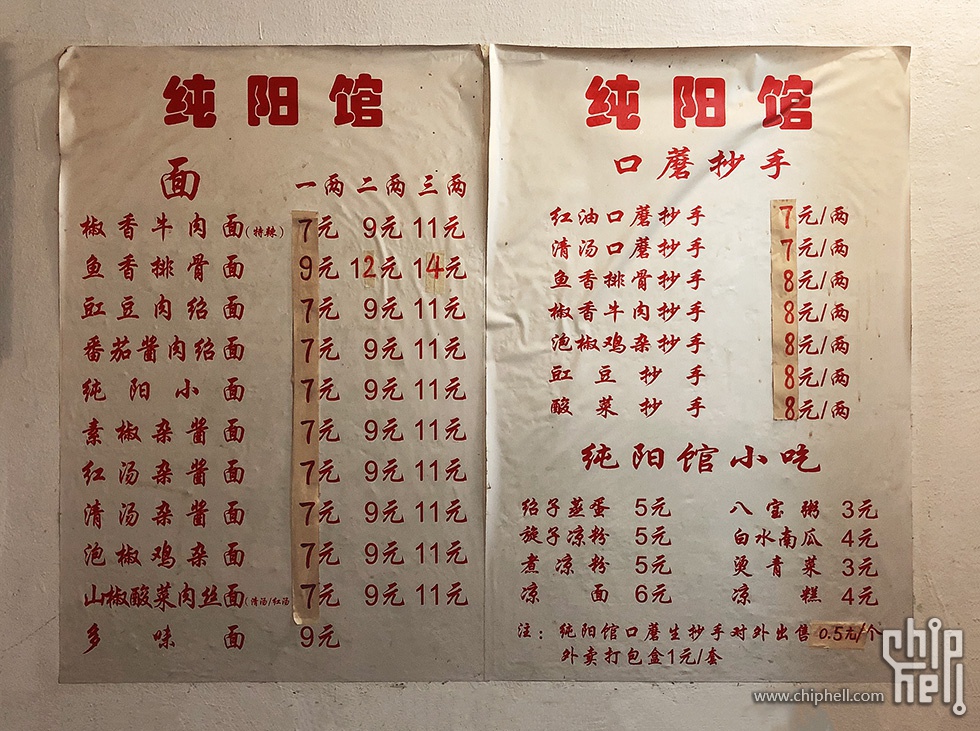 纯阳馆
面 一两 二两 三两
椒香牛肉面(特辣) 7元 9元 11元
鱼香排骨面 9元 12元 14元
豇豆肉绍面 7元 9元 11元
番茄酱肉绍面 7元 9元 11元
纯阳小面 7元 9元 11元
素椒杂酱面 7元 9元 11元
红汤杂酱面 7元 9元 11元
清汤杂酱面 7元 9元 11元
泡椒鸡杂面 7元 9元 11元
山椒酸菜肉丝面(清汤/红汤 7元 9元 11元
多味面 9元
纯阳馆
口蘑抄手
红油口蘑抄手 7元/两
清汤口蘑抄手 7元/两
鱼香排骨抄手 8元/两
椒香牛肉抄手 8元/两
泡椒鸡杂抄手 8元/两
豇豆抄手 8元/两
酸菜抄手 8元/两
纯阳馆小吃
绍子蒸蛋 5元 八宝粥 3元
旋子凉粉 5元 白水南瓜 4元
煮凉粉 5元 烫青菜 3元
凉面 6元 凉糕 4元
注：纯阳馆口蘑生抄手对外出售0.5元/个
外卖打包盒1元/套
chip
hell
www.chiphell.com